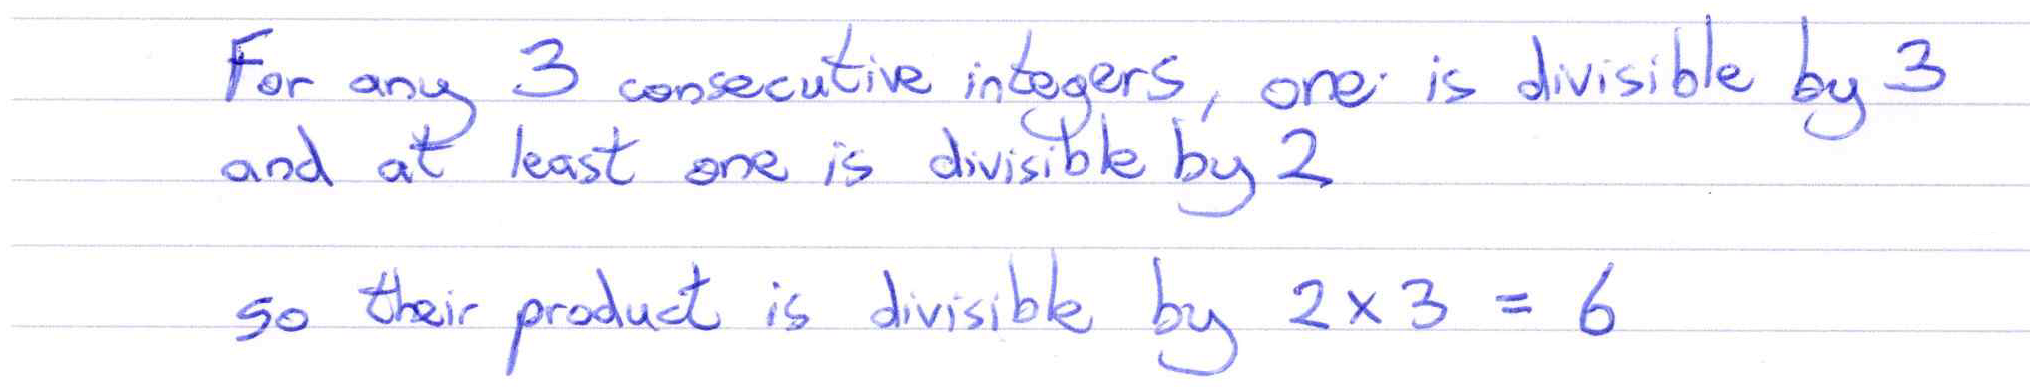 For any 3 consecutive integers, one is divisible by 3
and at least one is divisible by 2
so their product is divisible by 2 × 3 = 6